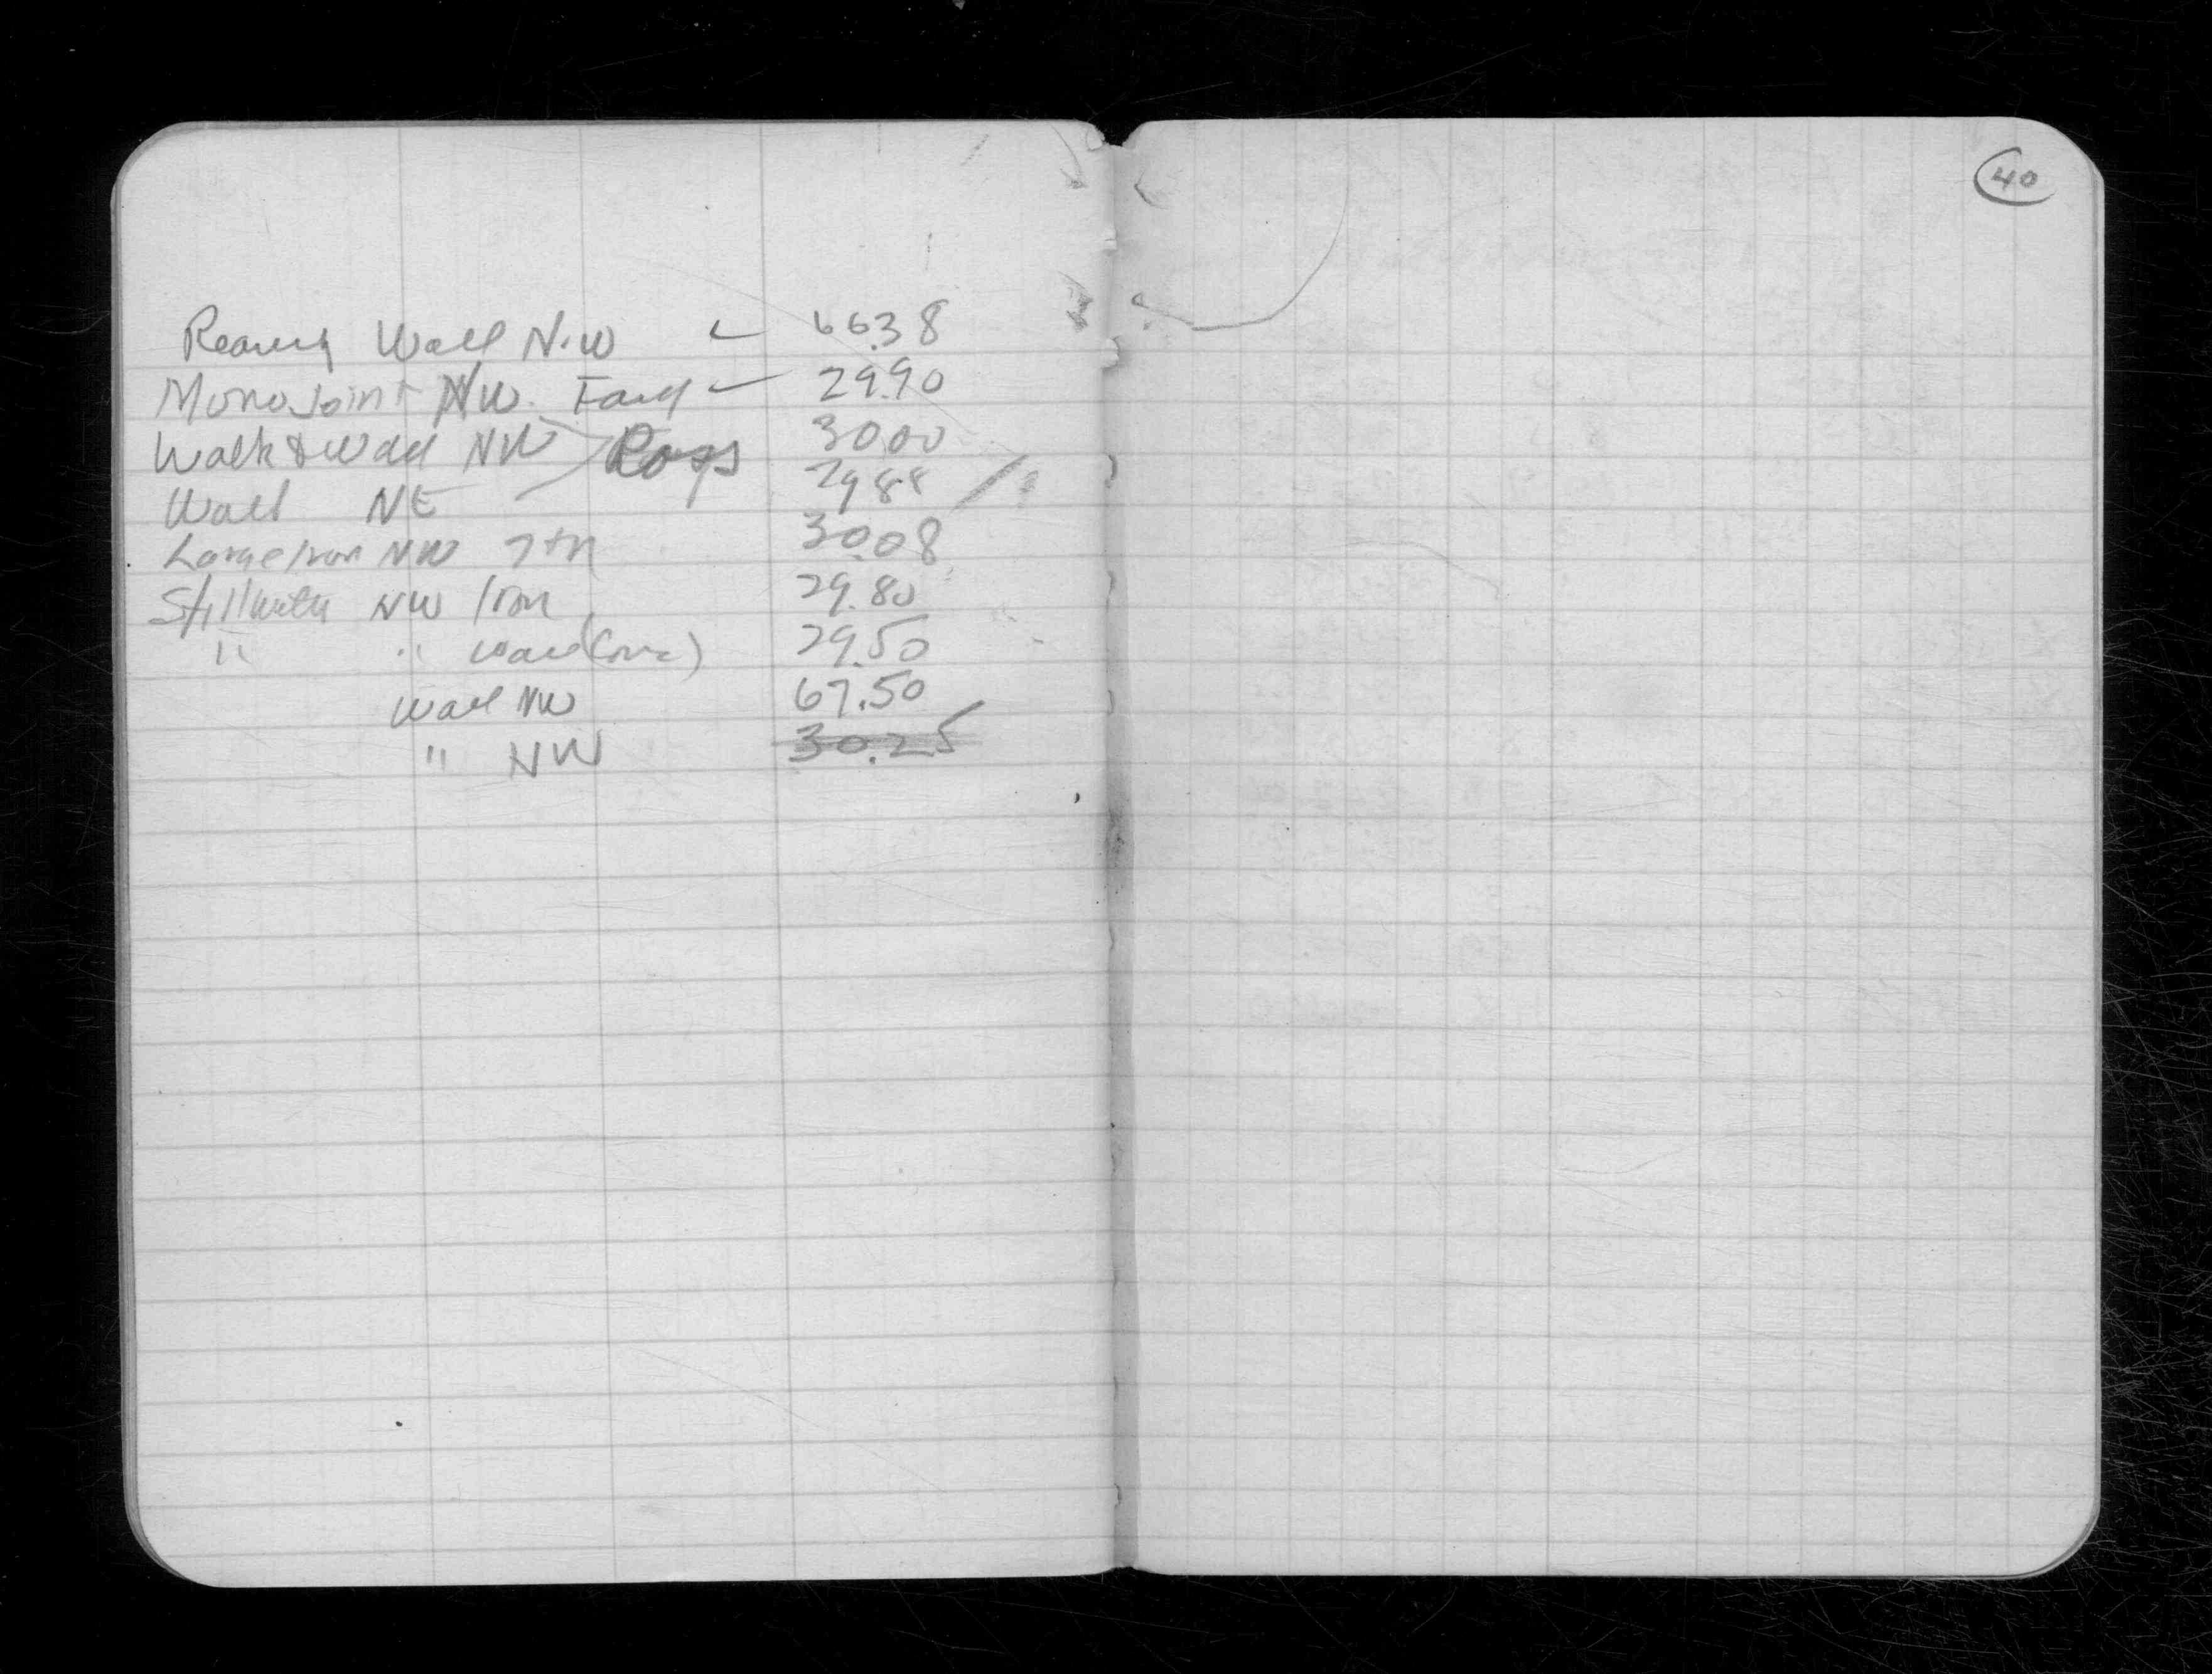 40
Wall N.W 66.38
Mono Joint NW. 29.90
Walk & Wall NW 30.00
Wall NE 29.88
Large Iron NW 7th 30.08
Stillwater NW Iron 29.80
" " Wall (Conc) 29.50
Wall NW 67.50
" NW 30.25